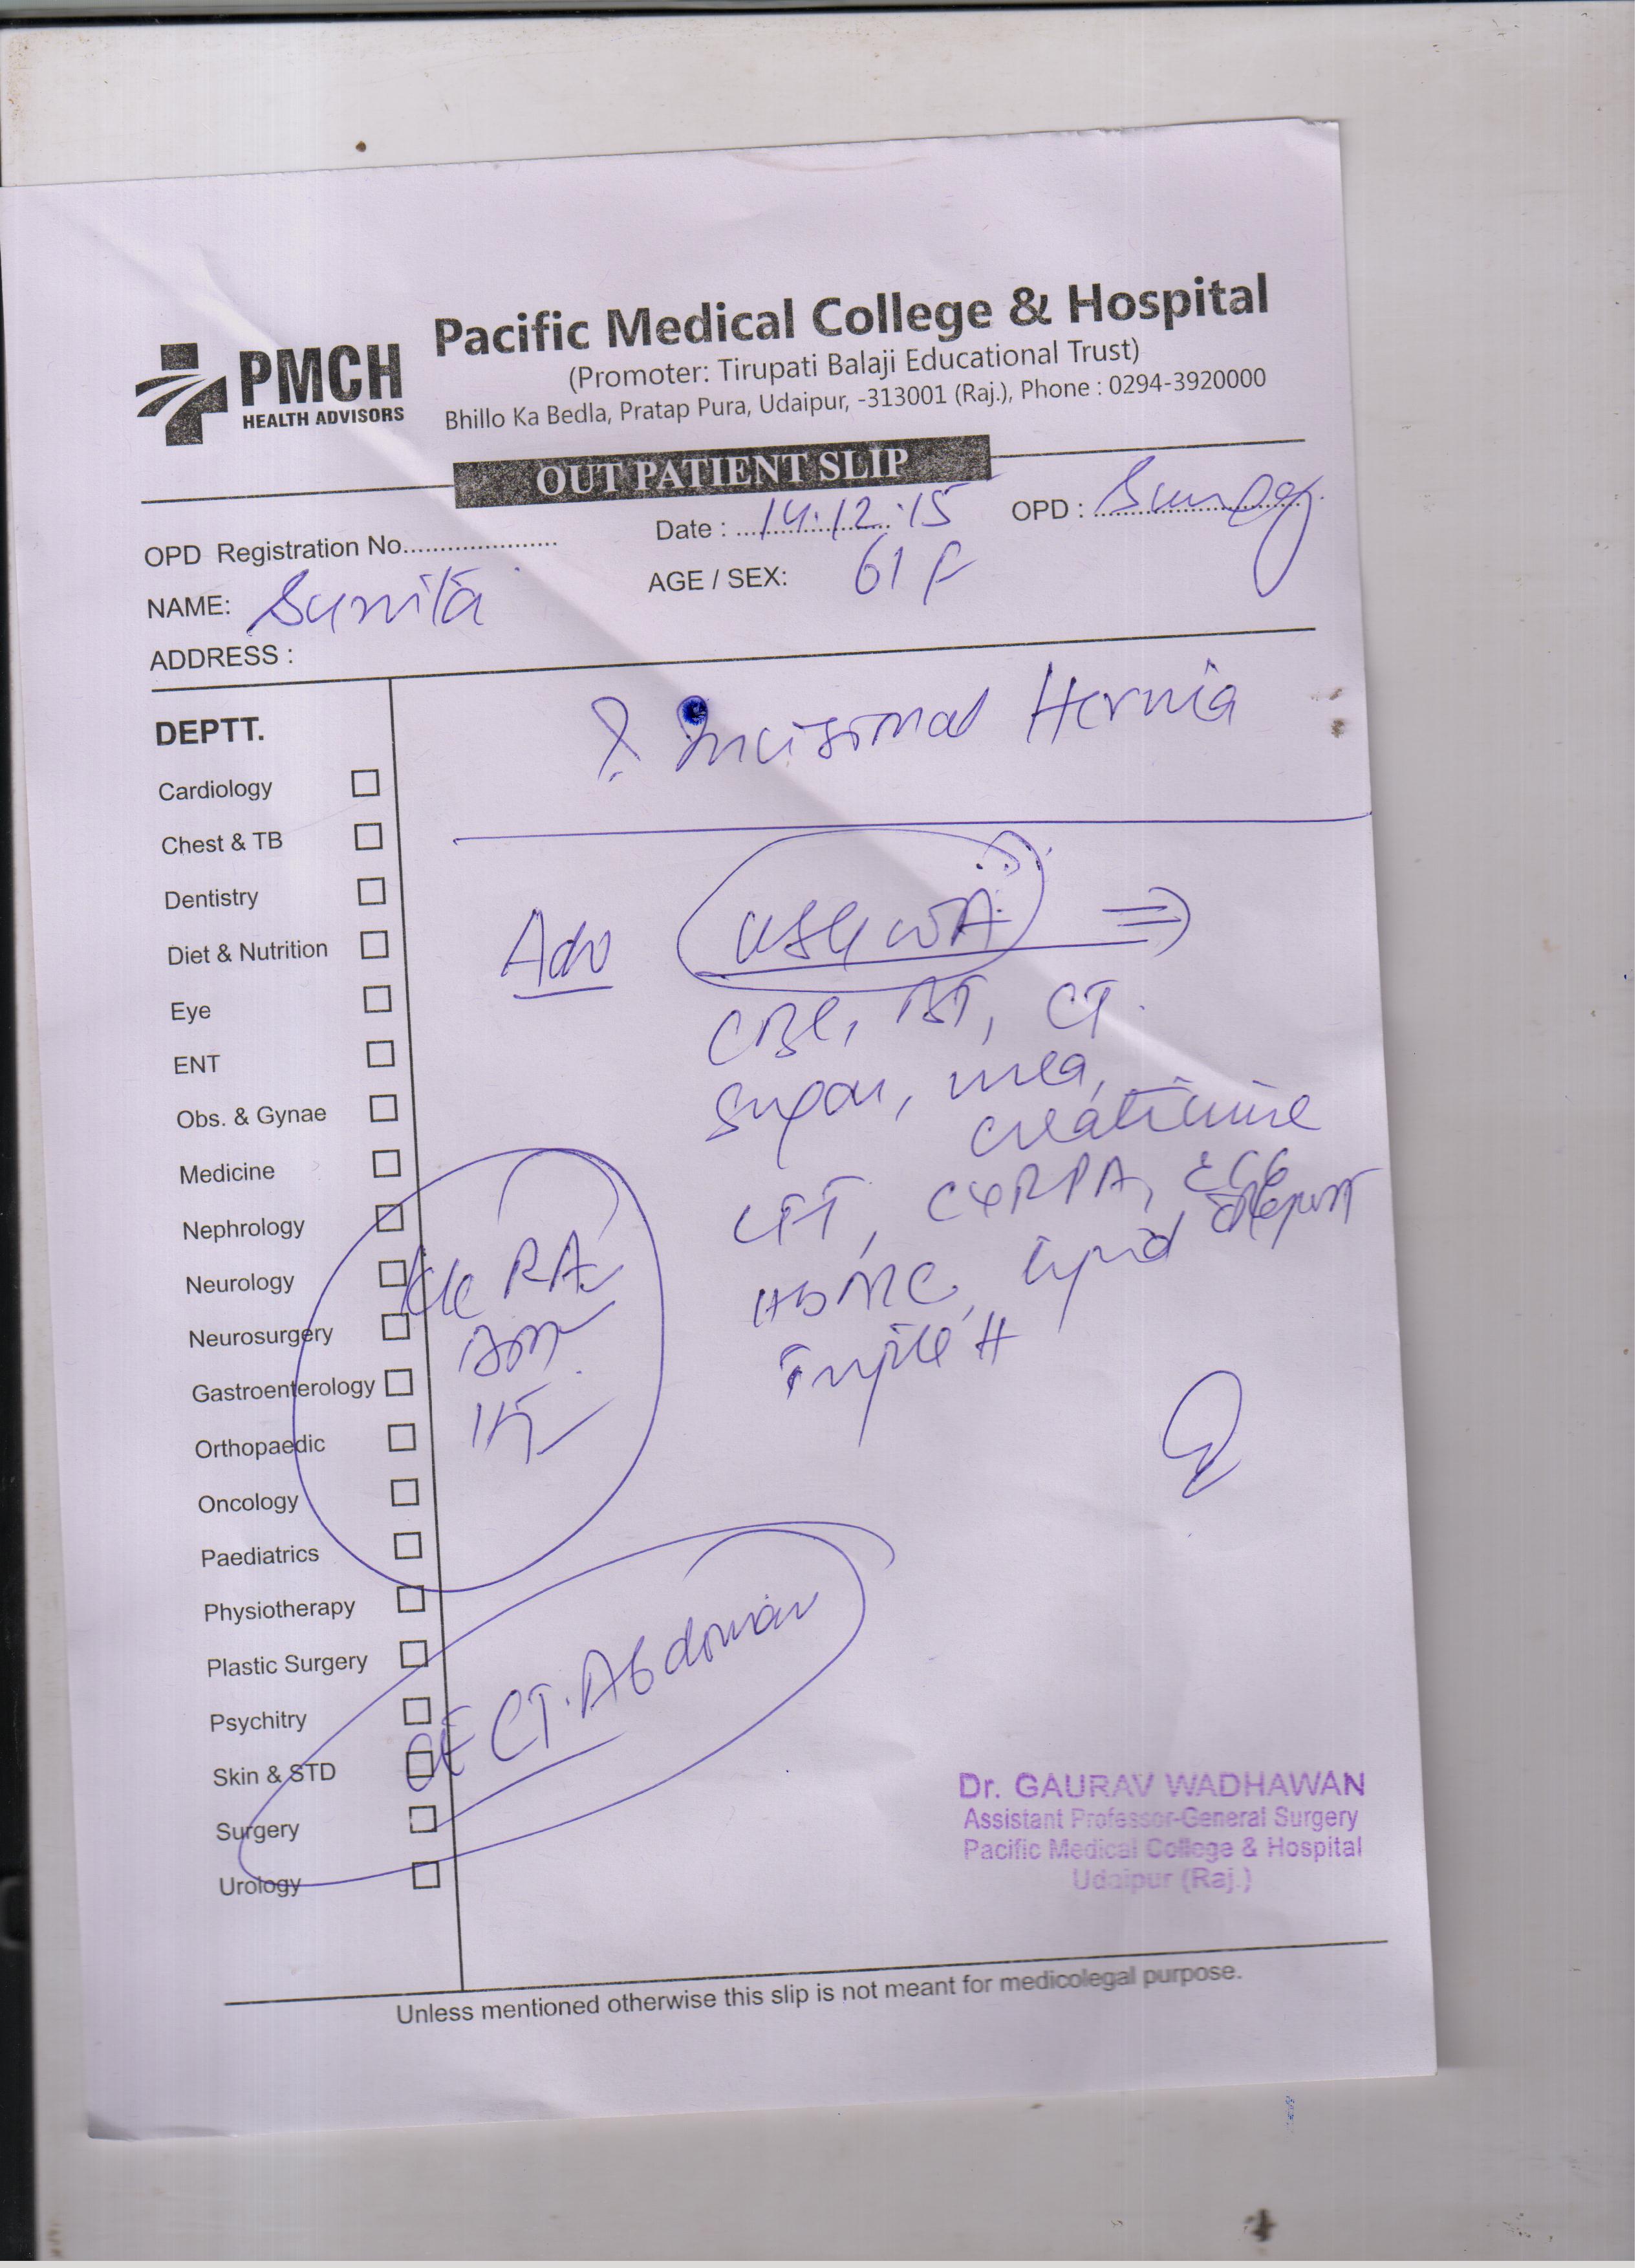 PMCH
HEALTH ADVISORS
Pacific Medical College & Hospital
(Promoter: Tirupati Balaji Educational Trust)
Bhillo Ka Bedla, Pratap Pura, Udaipur, -313001 (Raj.), Phone : 0294-3920000
OUT PATIENT SLIP
OPD Registration No...................... Date : 14.12.15 OPD : Surgery
NAME: Sunita AGE / SEX: 61 F
ADDRESS :
DEPTT.
Cardiology
Chest & TB
Dentistry
Diet & Nutrition
Eye
ENT
Obs. & Gynae
Medicine
Nephrology
Neurology
Neurosurgery
Gastroenterology
Orthopaedic
Oncology
Paediatrics
Physiotherapy
Plastic Surgery
Psychitry
Skin & STD
Surgery
Urology
? Incisional Hernia
Adv USG WA
CBC, BT, CT.
Sugar, urea,
creatinine
LFT, CXRPA, ECG
Lipid
Triple H
K/c RA
CECT. Abdomen
Dr. GAURAV WADHAWAN
Assistant Professor-General Surgery
Pacific Medical College & Hospital
Udaipur (Raj.)
Unless mentioned otherwise this slip is not meant for medicolegal purpose.